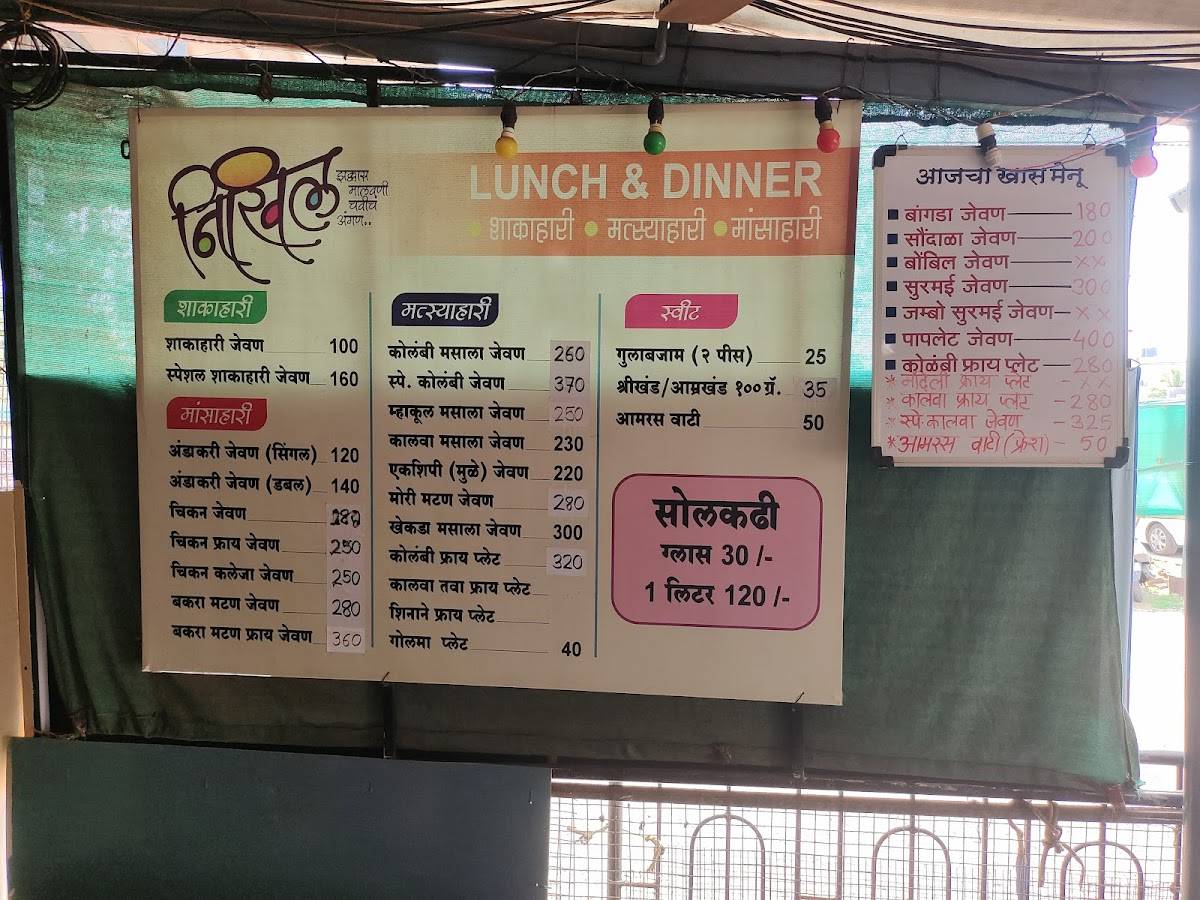 निखिल
झक्कास
मालवणी
चवीचं
अंगण..
LUNCH & DINNER
• शाकाहारी • मत्स्याहारी • मांसाहारी
शाकाहारी
शाकाहारी जेवण 100
स्पेशल शाकाहारी जेवण 160
मांसाहारी
अंडाकरी जेवण (सिंगल) 120
अंडाकरी जेवण (डबल) 140
चिकन जेवण
चिकन फ्राय जेवण 250
चिकन कलेजा जेवण 250
बकरा मटण जेवण 280
बकरा मटण फ्राय जेवण 360
मत्स्याहारी
कोलंबी मसाला जेवण 260
स्पे. कोलंबी जेवण 370
म्हाकूल मसाला जेवण 250
कालवा मसाला जेवण 230
एकशिपी (मुळे) जेवण 220
मोरी मटण जेवण 280
खेकडा मसाला जेवण 300
कोलंबी फ्राय प्लेट 320
कालवा तवा फ्राय प्लेट
शिनाने फ्राय प्लेट
गोलमा प्लेट 40
स्वीट
गुलाबजाम (२ पीस) 25
श्रीखंड/आम्रखंड १०० ग्रॅ. 35
आमरस वाटी 50
सोलकढी
ग्लास 30 /-
1 लिटर 120 /-
आजचा खास मेनू
बांगडा जेवण 180
सौंदाळा जेवण 200
बोंबिल जेवण xx
सुरमई जेवण 300
जम्बो सुरमई जेवण xx
पापलेट जेवण 400
कोळंबी फ्राय प्लेट 280
* मांदेली फ्राय प्लेट - xx
* कालवा फ्राय प्लेट - 280
* स्पे. कालवा जेवण - 325
* आमरस वाटी (फ्रेश) - 50